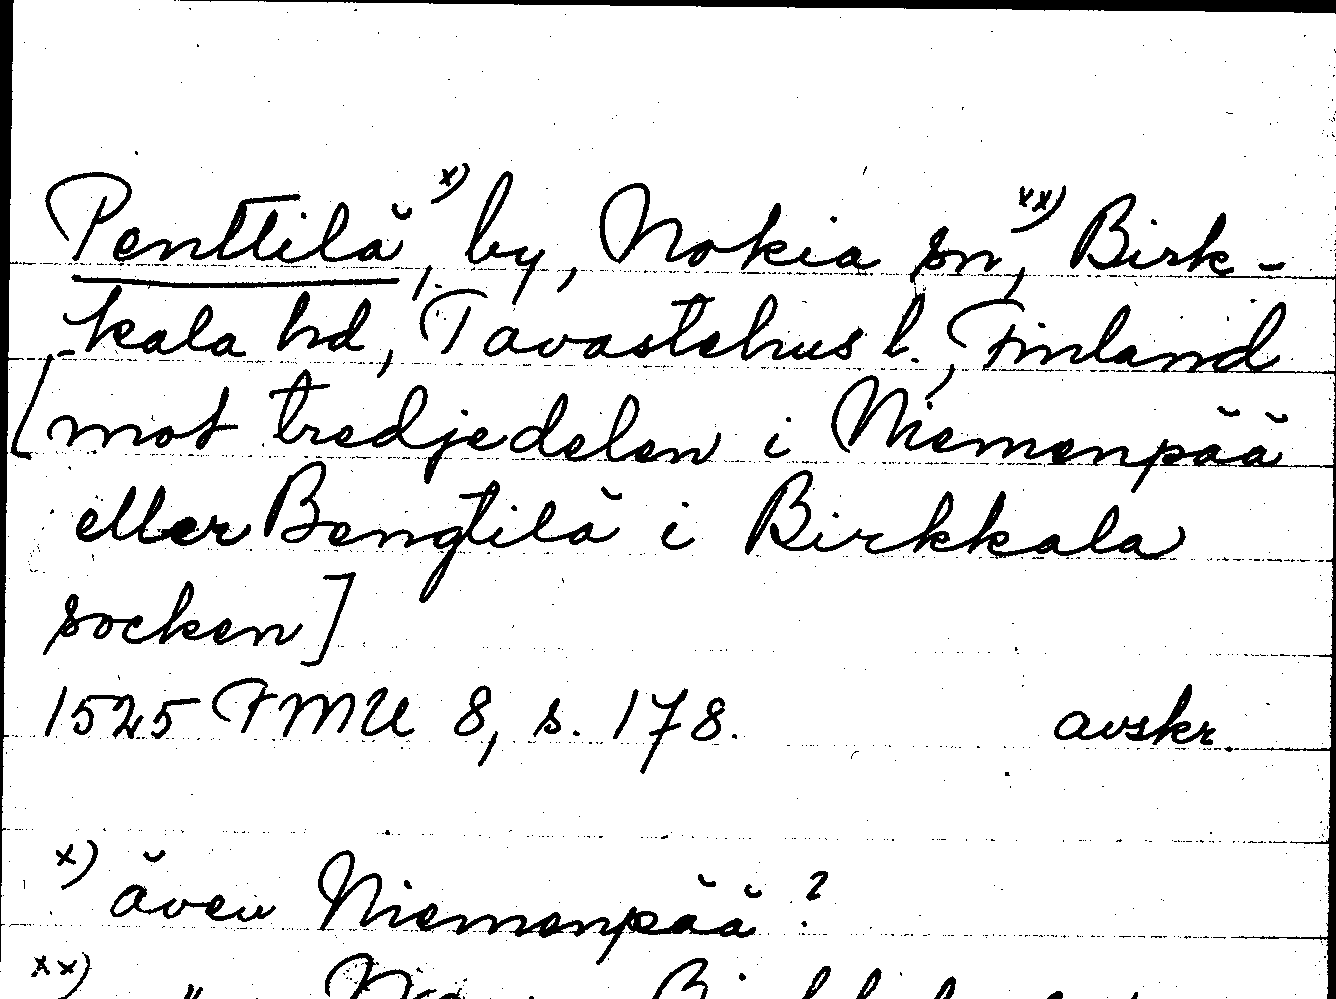 Penttilä x), by, Nokia sn xx), Birk-
kala hd, Tavastehus l., Finland
[mot tredjedelen i Niemenpää
eller Bengtilä i Birkkala
socken]
1525 FMU 8, s. 178. avskr.
x) även Niemenpää?
xx)